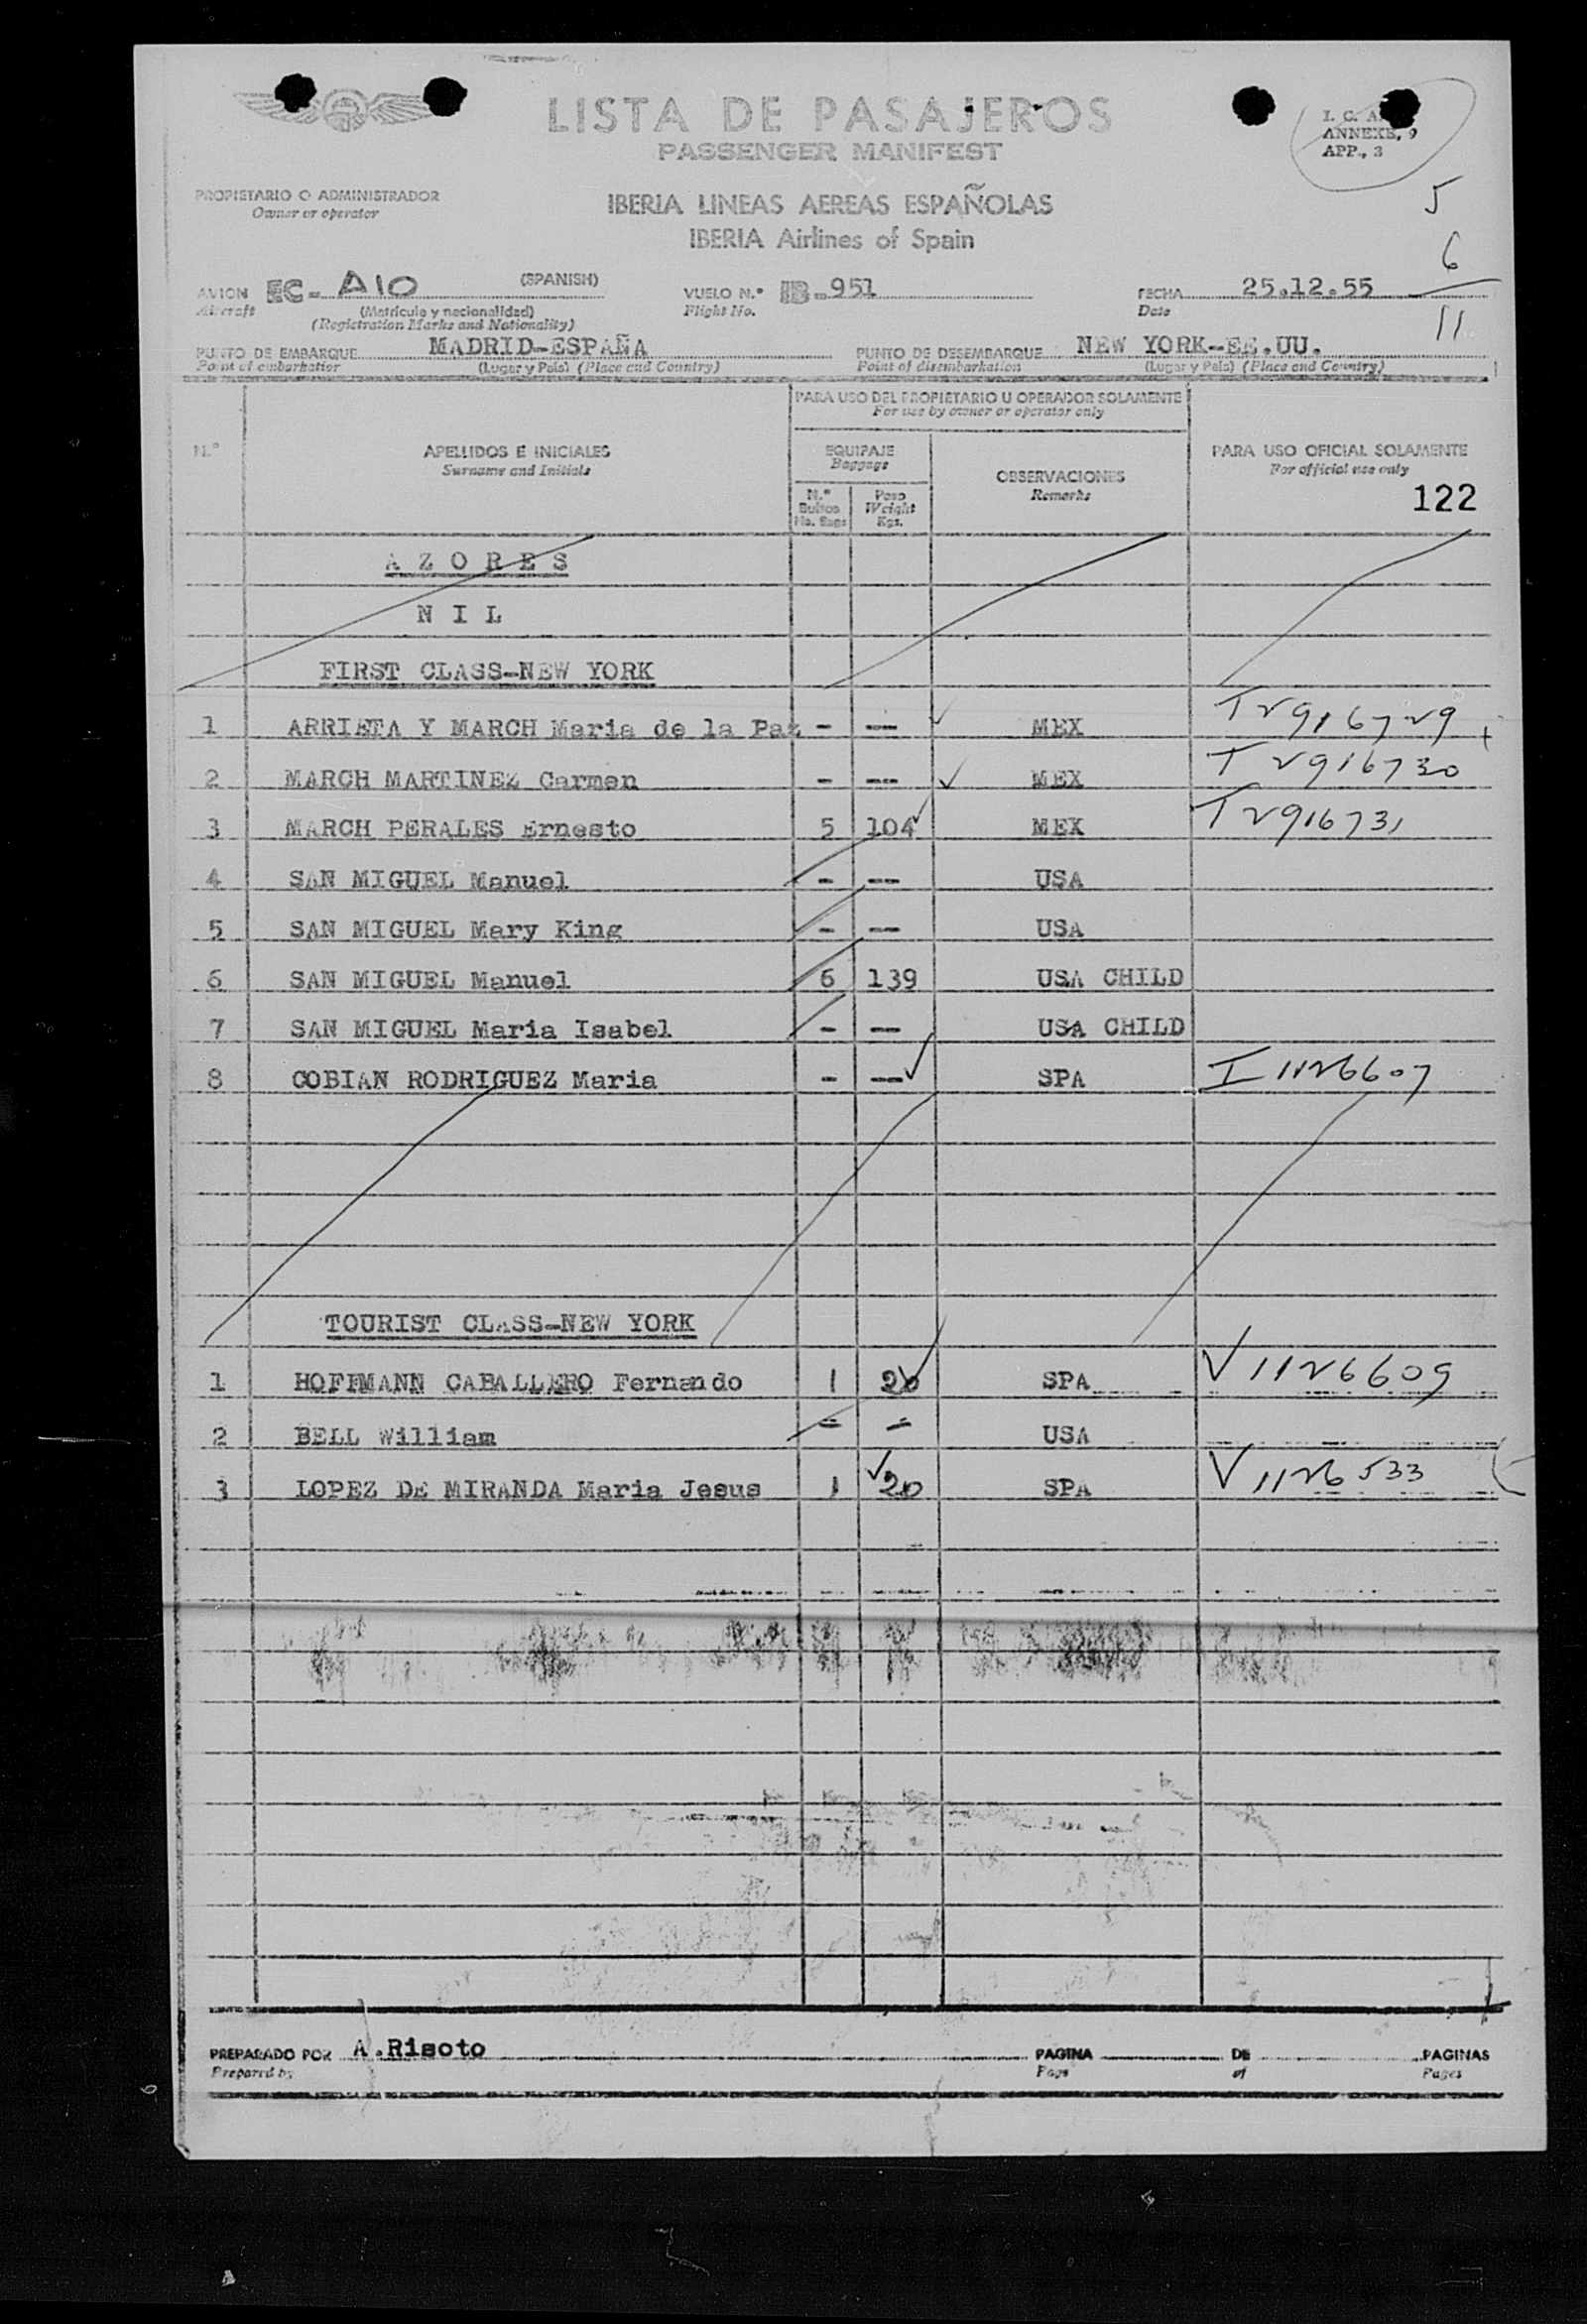 LISTA DE PASAJEROS
PASSENGER MANIFEST
I. C. A.
ANNEXE, 9
APP., 3
PROPIETARIO O ADMINISTRADOR
Owner or operator
IBERIA LINEAS AEREAS ESPAÑOLAS
IBERIA Airlines of Spain
5
6
11
AVION EC- AIO (SPANISH) VUELO N.º IB-951 FECHA 25.12.55
Aircraft (Matricula y nacionalidad) Flight No. Date
(Registration Marks and Nationality)
PUNTO DE EMBARQUE MADRID-ESPAÑA PUNTO DE DESEMBARQUE NEW YORK-EE.UU.
Point of embarkation (Lugar y Pais) (Place and Country) Point of disembarkation (Lugar y Pais) (Place and Country)
PARA USO DEL PROPIETARIO U OPERADOR SOLAMENTE
For use by owner or operator only
N.º APELLIDOS E INICIALES EQUIPAJE OBSERVACIONES PARA USO OFICIAL SOLAMENTE
Surname and Initials Baggage Remarks For official use only
N.º Bultos No. Bags Peso Weight Kgs. 122
AZORES
NIL
FIRST CLASS-NEW YORK
1 ARRIETA Y MARCH Maria de la Paz - -- MEX T2916729
2 MARCH MARTINEZ Carmen - -- MEX T2916730
3 MARCH PERALES Ernesto 5 104 MEX T2916731
4 SAN MIGUEL Manuel - -- USA
5 SAN MIGUEL Mary King - -- USA
6 SAN MIGUEL Manuel 6 139 USA CHILD
7 SAN MIGUEL Maria Isabel - -- USA CHILD
8 COBIAN RODRIGUEZ Maria - -- SPA I 1126607
TOURIST CLASS-NEW YORK
1 HOFFMANN CABALLERO Fernando 1 20 SPA V1126609
2 BELL William - - USA
3 LOPEZ DE MIRANDA Maria Jesus 1 20 SPA V1126533
PREPARADO POR A.Risoto PAGINA DE PAGINAS
Prepared by Page of Pages